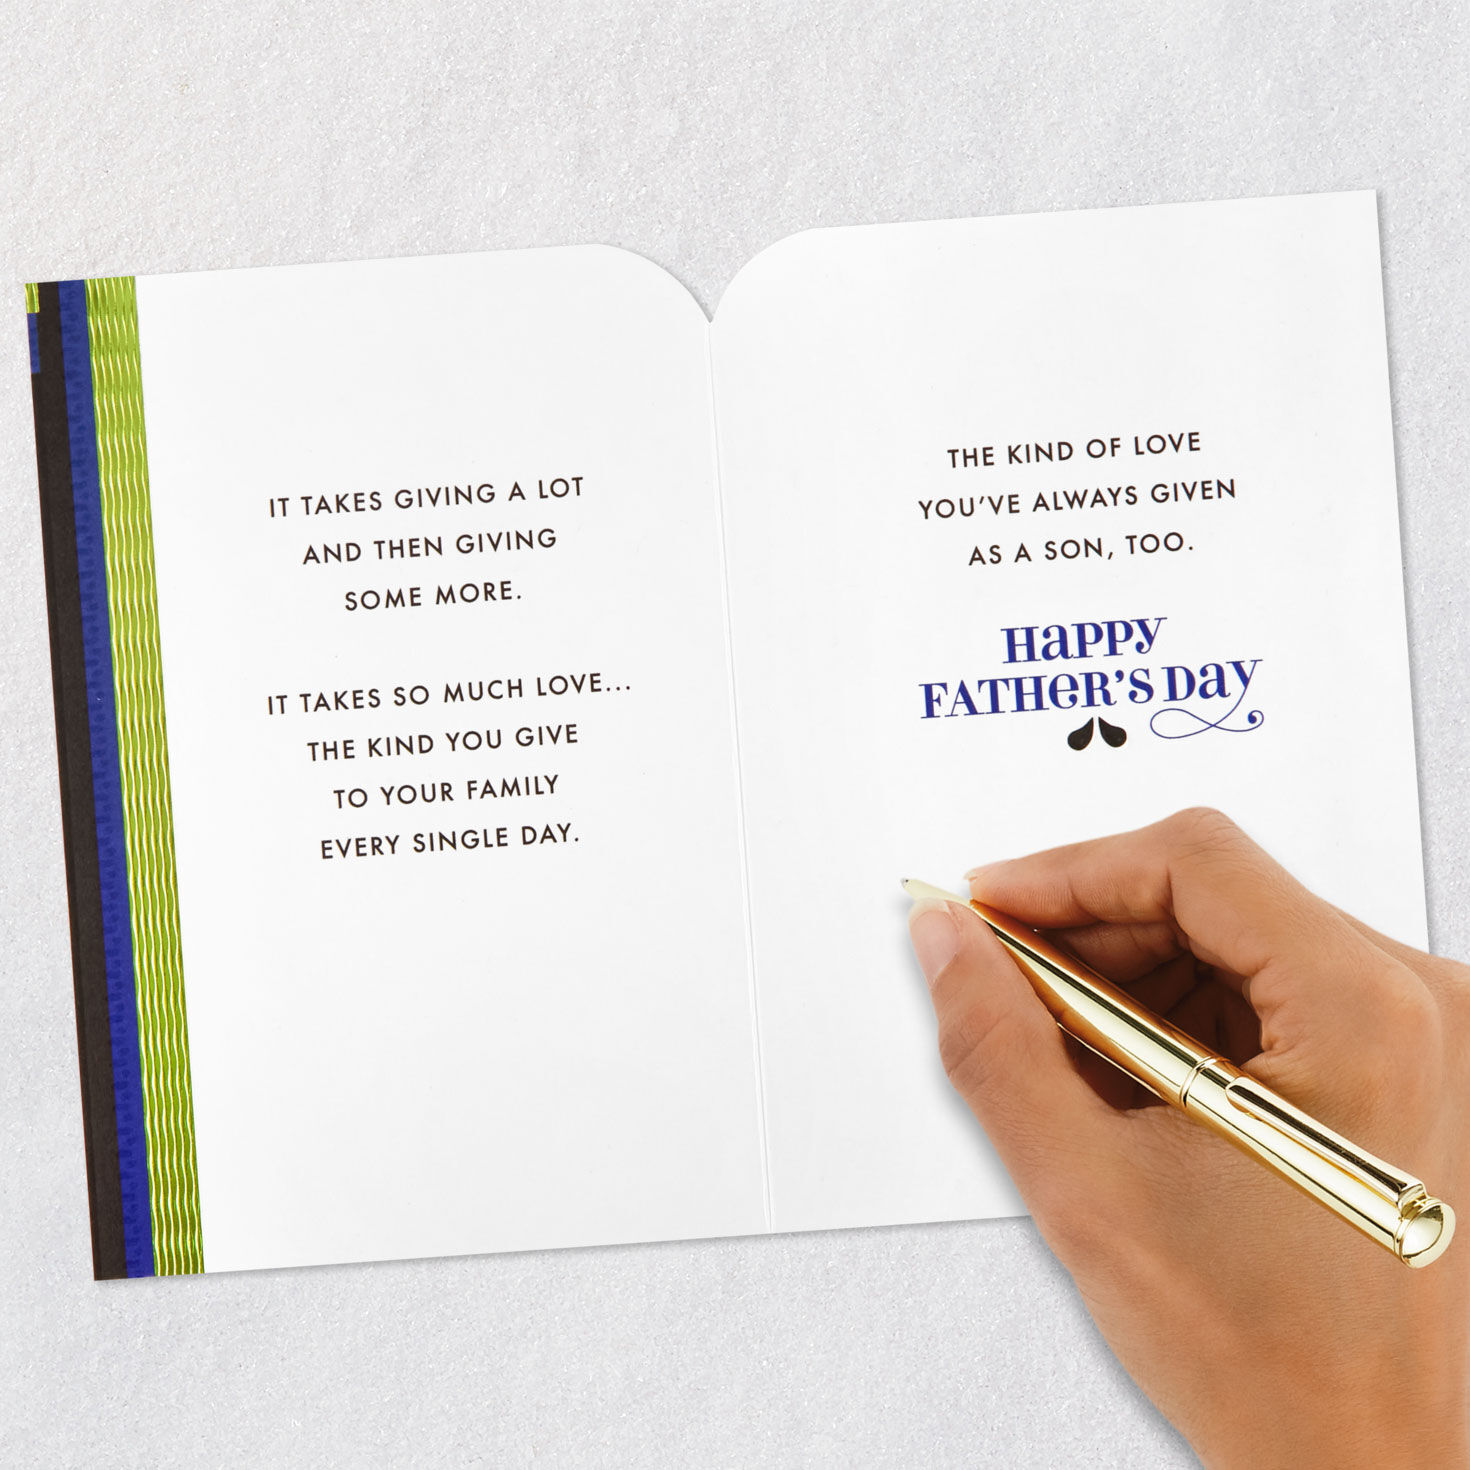 IT TAKES GIVING A LOT
AND THEN GIVING
SOME MORE.
IT TAKES SO MUCH LOVE...
THE KIND YOU GIVE
TO YOUR FAMILY
EVERY SINGLE DAY.
THE KIND OF LOVE
YOU'VE ALWAYS GIVEN
AS A SON, TOO.
HAPPY
FATHER'S DAY